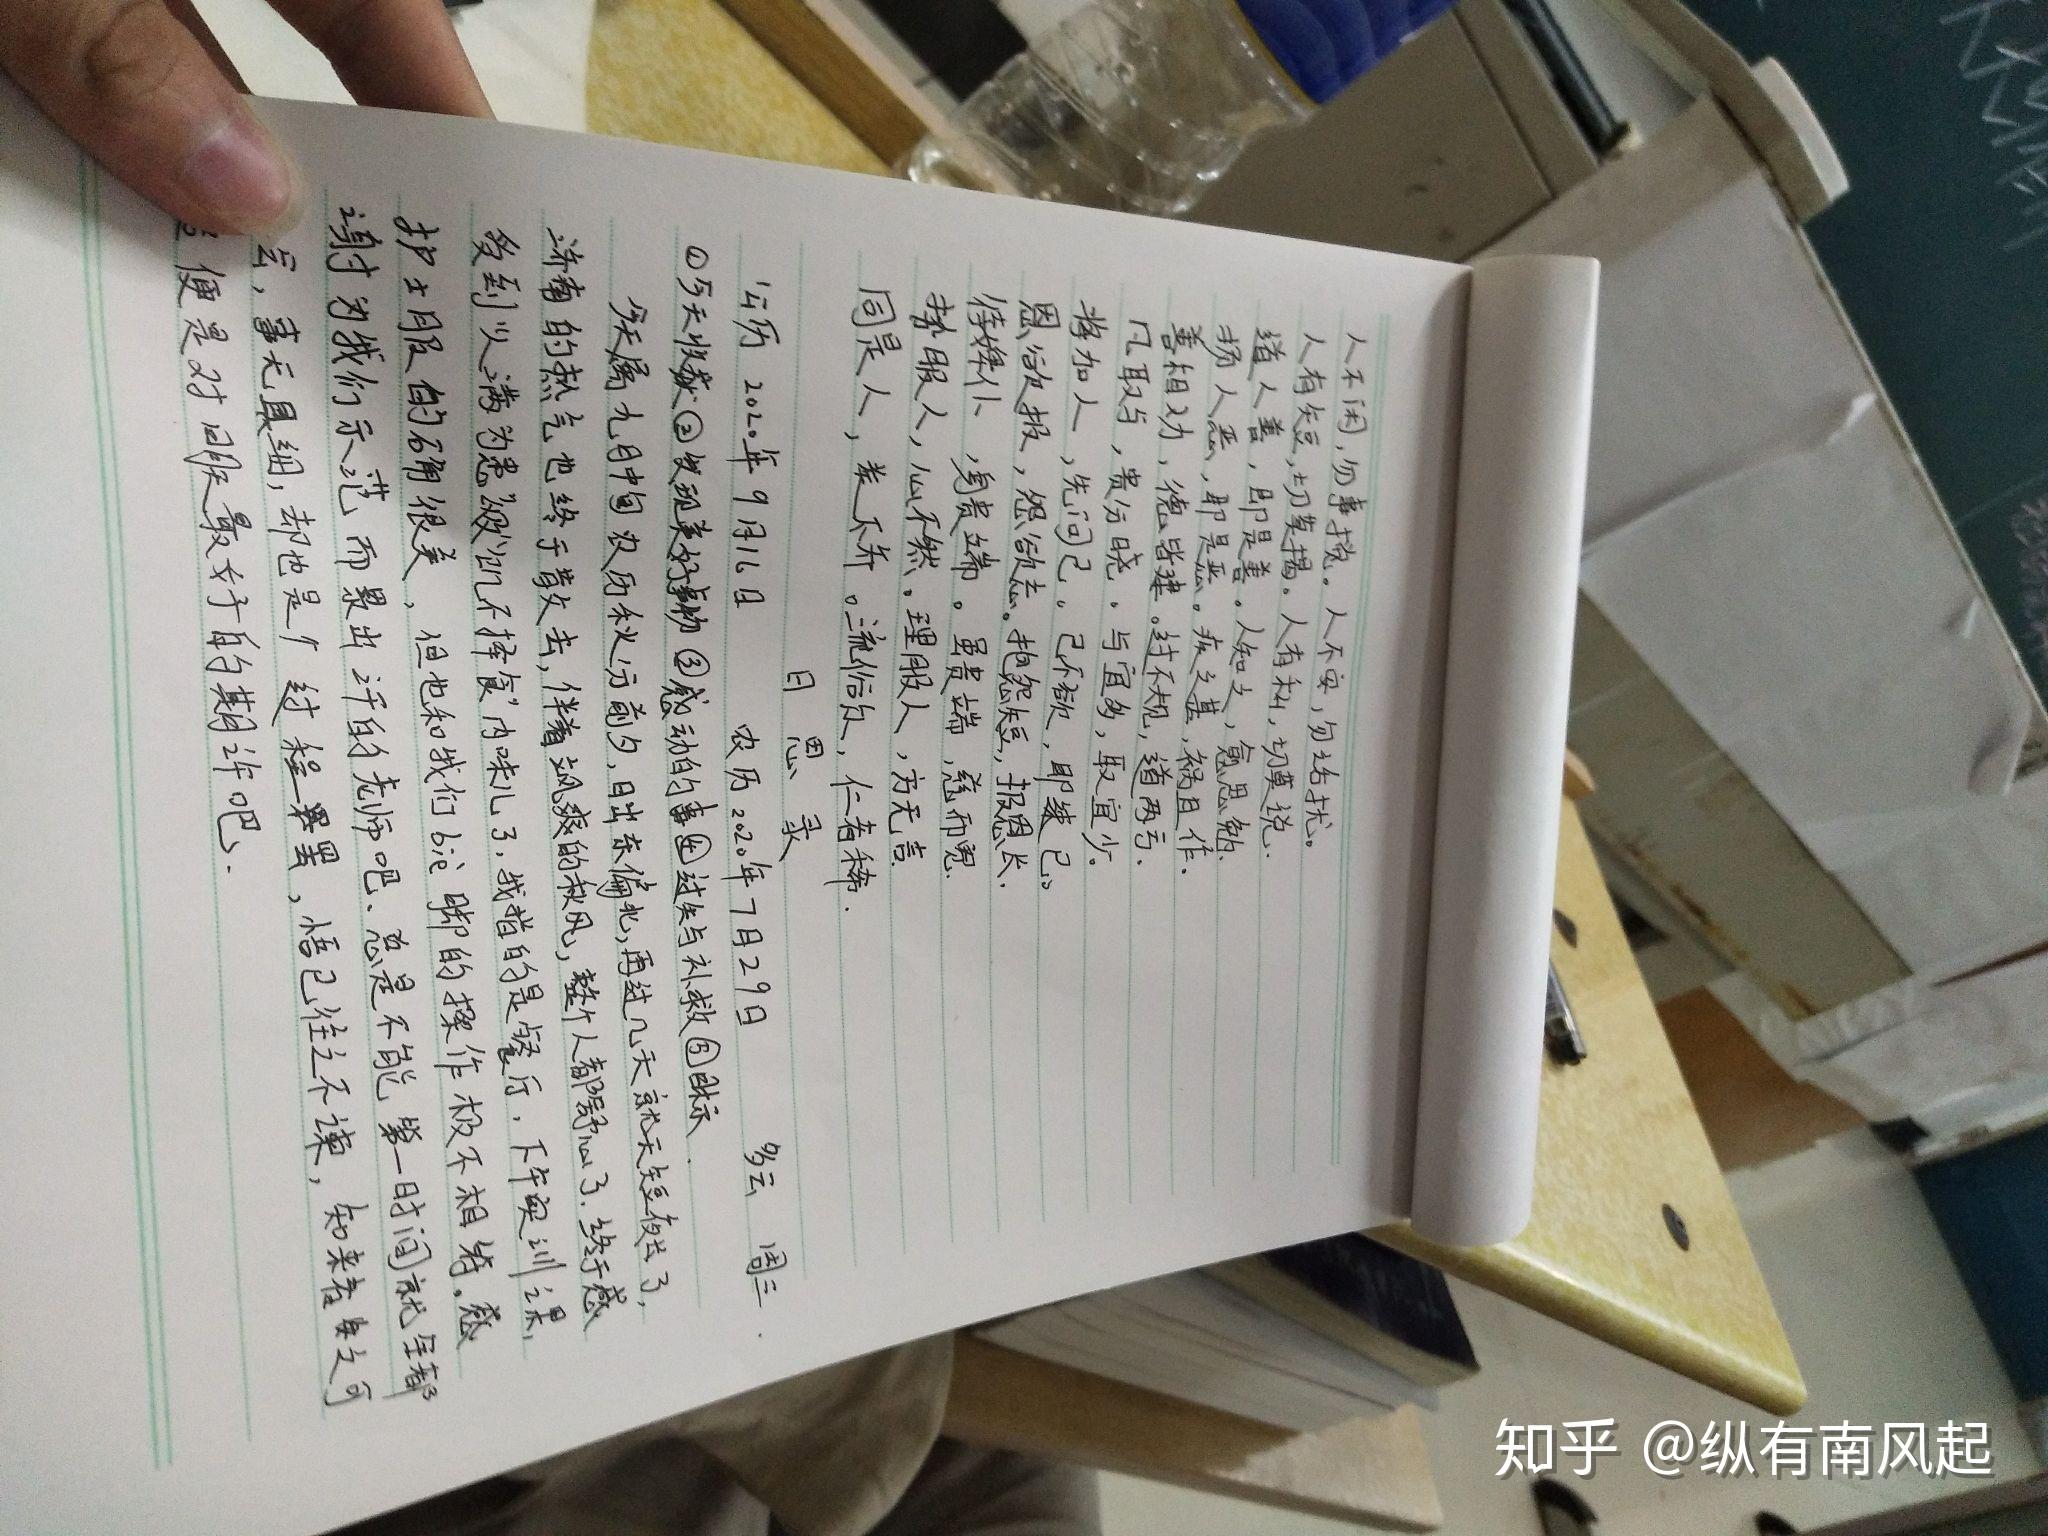 人不闲，勿事搅。人不安，勿话扰。
人有短，切莫揭。人有私，切莫说.
道人善，即是善。人知之，愈思勉.
扬人恶，即是恶。疾之甚，祸且作.
善相劝，德皆建。过不规，道两亏.
凡取与，贵分晓。与宜多，取宜少。
将加人，先问己。己不欲，即速已。
恩欲报，怨欲忘。抱怨短，报恩长.
待婢仆，身贵端。虽贵端，慈而宽.
势服人，心不然。理服人，方无言.
同是人，类不齐。流俗众，仁者稀.
日 恩 录
公历 2020年9月16日 农历2020年7月29日 多云 周三.
①今天收获②发现美好事物③感动的事④过失与补救⑤目标.
今天属九月中旬农历秋分前夕,日出东偏北,再过几天就天短夜长了,
济南的热气也终于散去,伴着飒爽的秋风,整个人都舒心了.终于感
受到以满为患“饥不择食”内味儿了,我指的是餐厅.下午实训课,
护士服的确很美、但也和我们bie脚的操作极不相符.感
谢为我们示范而累出汗的老师吧、总是不能第一时间就全都
会,事无具细,却也是个过程罢,悟已往之不谏,知来者之可
便是对自己最好的期许吧、
知乎 @纵有南风起